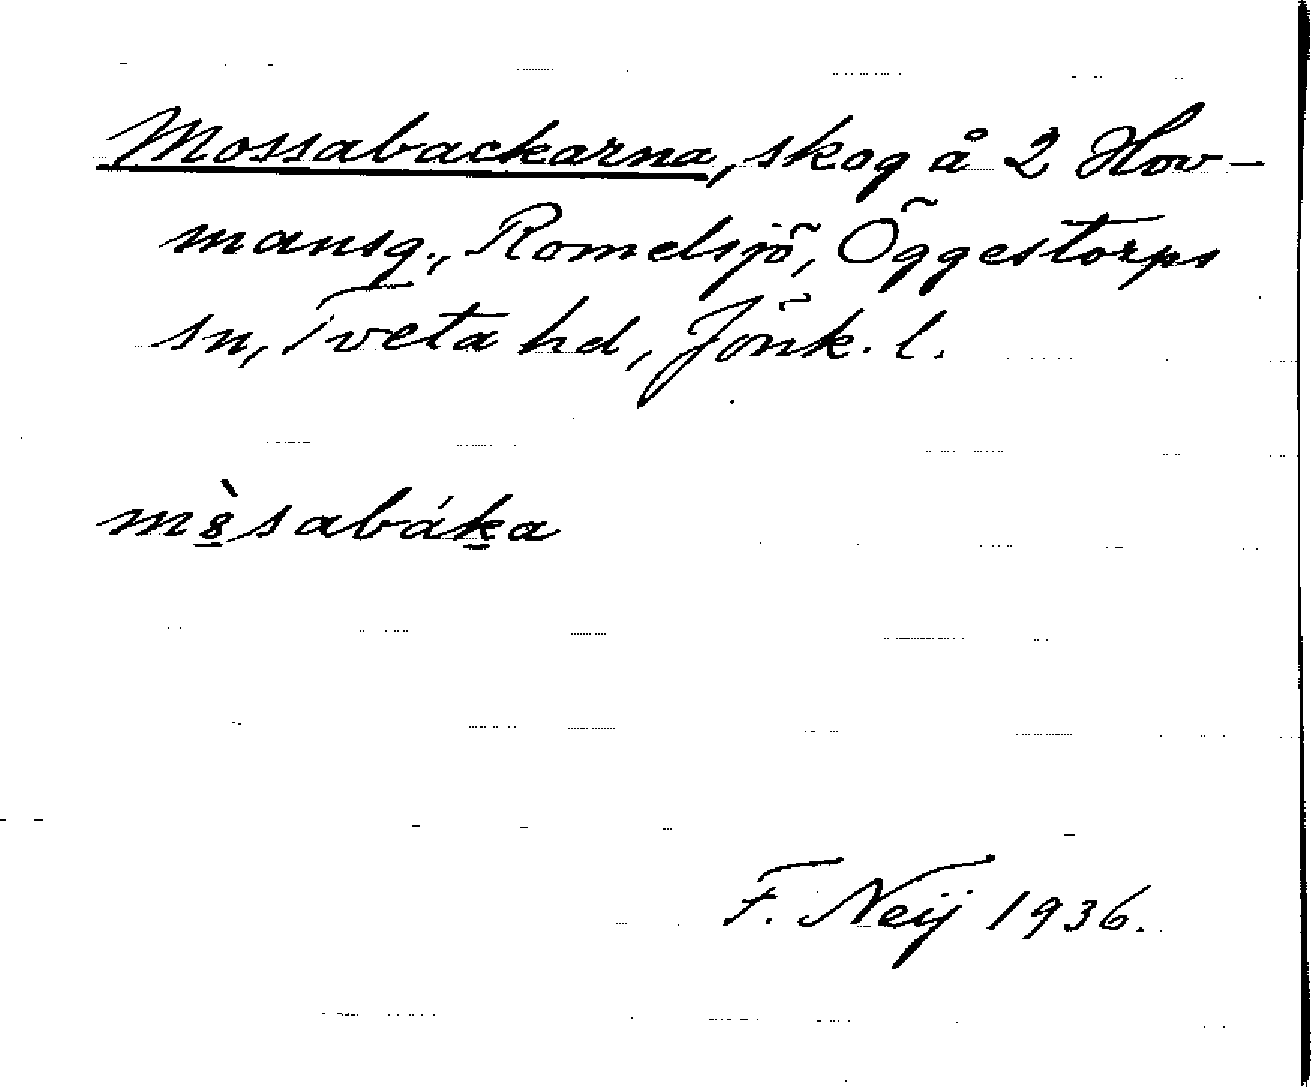 Mossabackarna, skog å 2 Hov-
mansg., Romelsjö, Öggestorps
sn, Tveta hd, Jönk. l.
mò̱sabáḵa
F. Neij 1936.